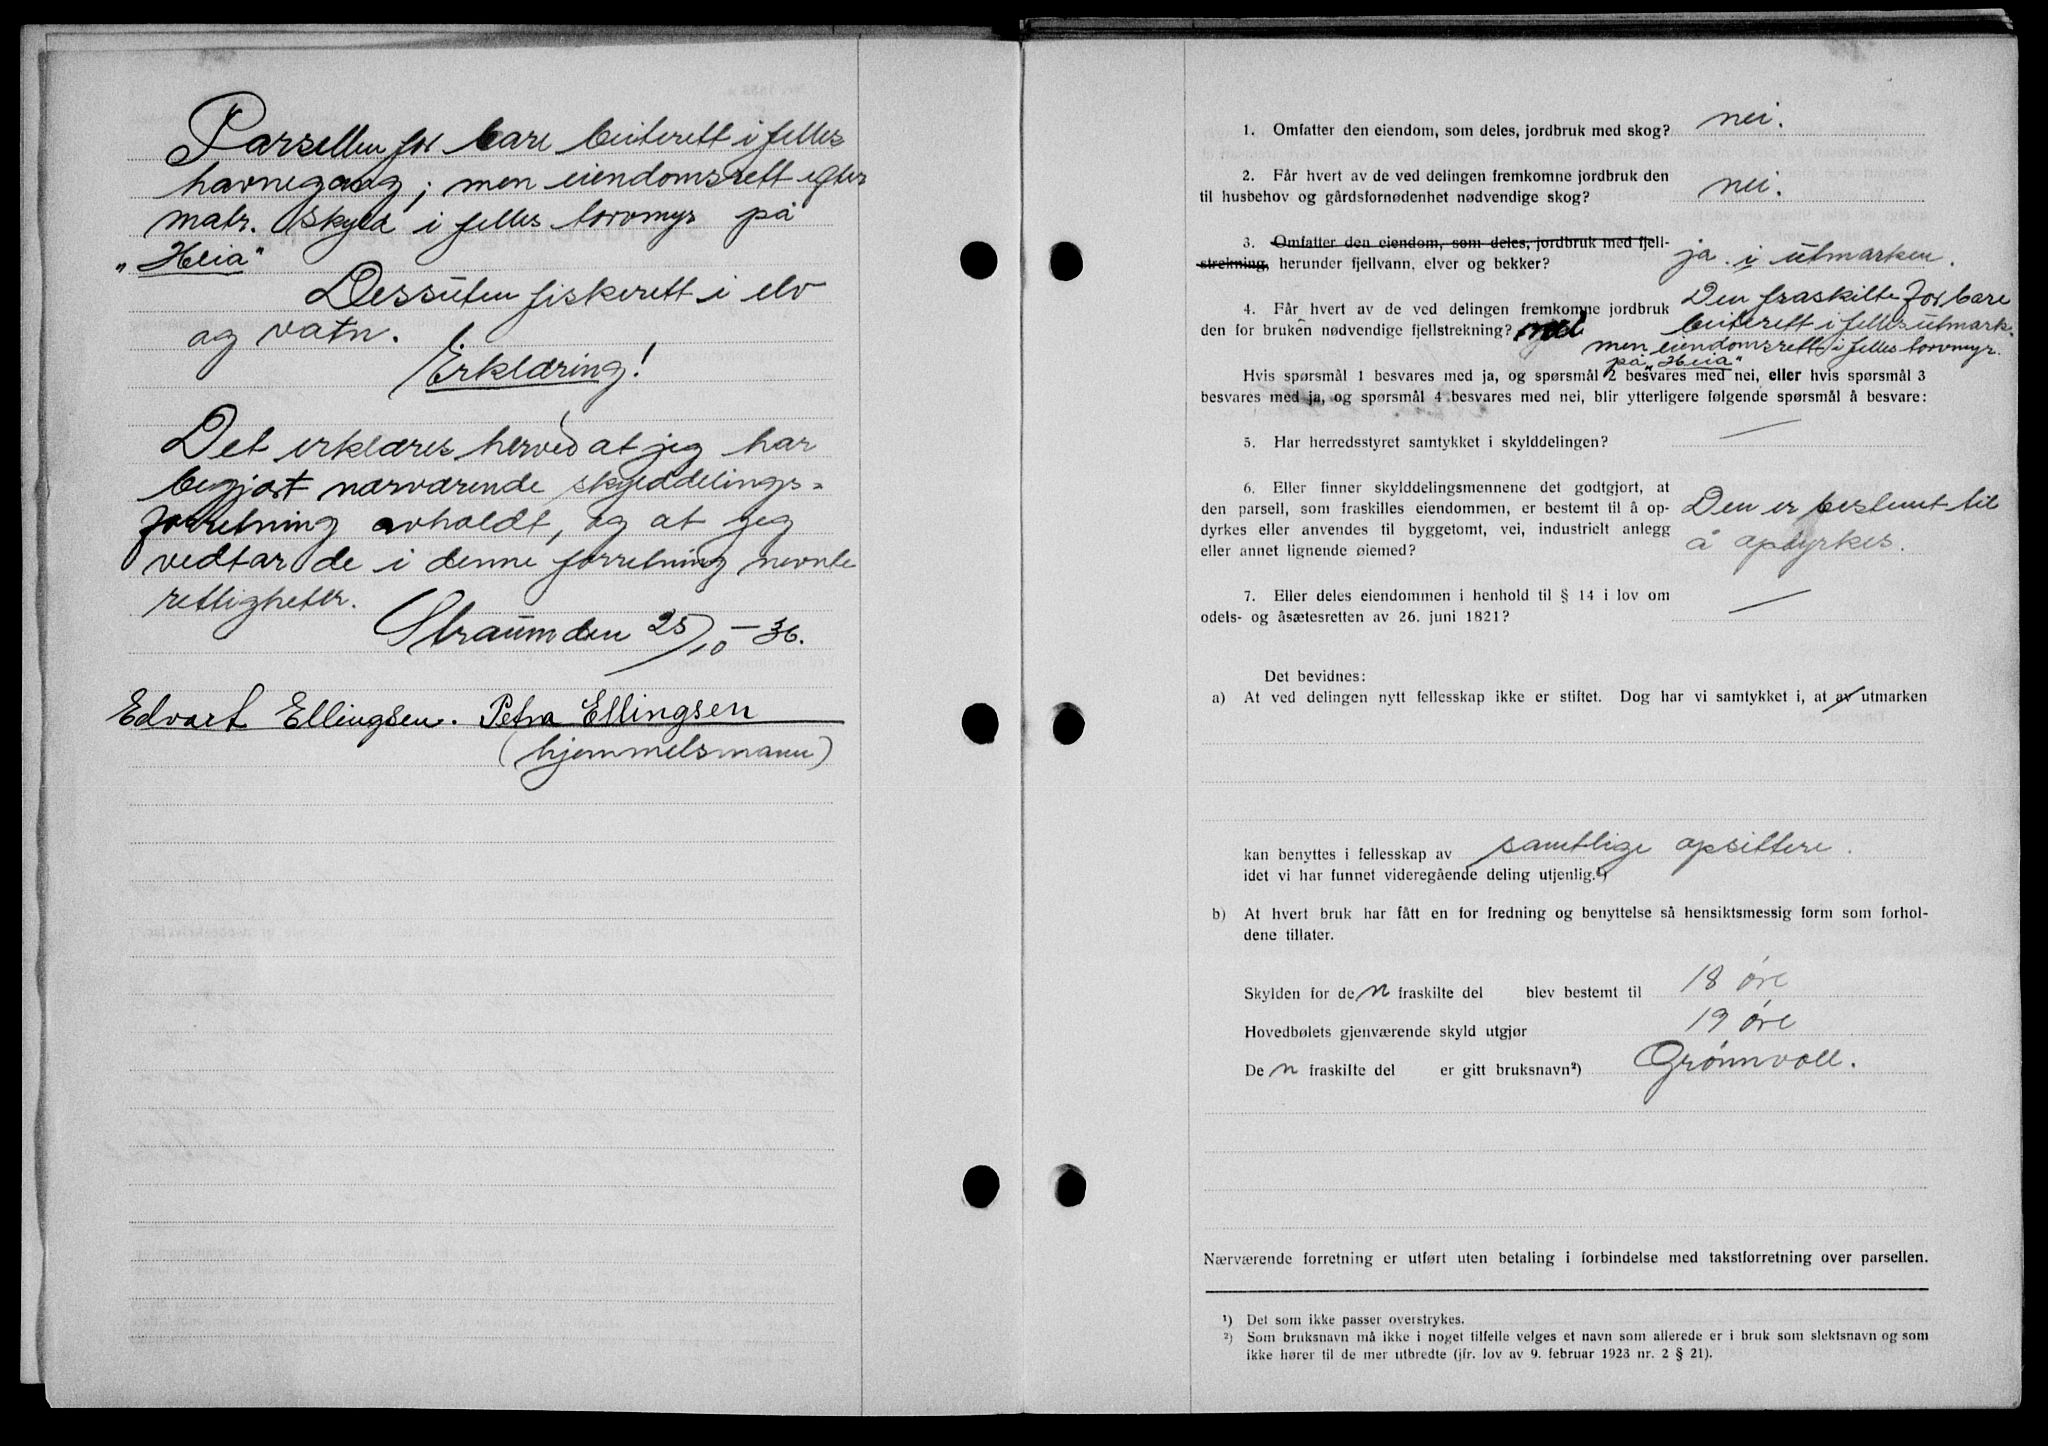 Parsellen før bare beiterett i felles
havnegang; men eiendomsrett efter
matr. skyld i felles torvmyr på
"Heia"
Dessuten fiskerett i elv
og vatn.
Erklæring!
Det erklæres herved at jeg har
begjært nærværende skylddelings-
forretning avholdt, og at jeg
vedtar de i denne forretning nevnte
rettigheter.
Straum den 25/10 - 36.
Edvart Ellingsen. Petra Ellingsen
(hjemmelsmann)
1. Omfatter den eiendom, som deles, jordbruk med skog? nei.
2. Får hvert av de ved delingen fremkomne jordbruk den
til husbehov og gårdsfornødenhet nødvendige skog? nei.
3. Omfatter den eiendom, som deles, jordbruk med fjell-
strekning, herunder fjellvann, elver og bekker? ja i utmarken.
4. Får hvert av de ved delingen fremkomne jordbruk
den for bruken nødvendige fjellstrekning?
Den fraskilte før bare
beiterett i felles utmark.
men eiendomsrett i felles torvmyr
på "Heia"
Hvis spørsmål 1 besvares med ja, og spørsmål 2 besvares med nei, eller hvis spørsmål 3
besvares med ja, og spørsmål 4 besvares med nei, blir ytterligere følgende spørsmål å besvare:
5. Har herredsstyret samtykket i skylddelingen? —
6. Eller finner skylddelingsmennene det godtgjort, at
den parsell, som fraskilles eiendommen, er bestemt til å op-
dyrkes eller anvendes til byggetomt, vei, industrielt anlegg
eller annet lignende øiemed?
Den er bestemt til
å opdyrkes.
7. Eller deles eiendommen i henhold til § 14 i lov om
odels- og åsætesretten av 26. juni 1821? —
Det bevidnes:
a) At ved delingen nytt fellesskap ikke er stiftet. Dog har vi samtykket i, at av utmarken
kan benyttes i fellesskap av samtlige opsittere.
idet vi har funnet videregående deling utjenlig.¹)
b) At hvert bruk har fått en for fredning og benyttelse så hensiktsmessig form som forhol-
dene tillater.
Skylden for de n fraskilte del blev bestemt til 18 øre
Hovedbølets gjenværende skyld utgjør 19 øre
De n fraskilte del er gitt bruksnavn²) Grønnvoll.
Nærværende forretning er utført uten betaling i forbindelse med takstforretning over parsellen.
¹) Det som ikke passer overstrykes.
²) Som bruksnavn må ikke i noget tilfelle velges et navn som allerede er i bruk som slektsnavn og som
ikke hører til de mer utbredte (jfr. lov av 9. februar 1923 nr. 2 § 21).